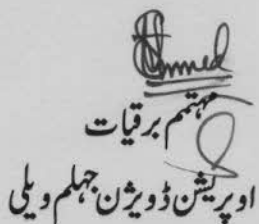 Ahmed
مہتمم برقیات
اوپریشن ڈویژن جہلم ویلی